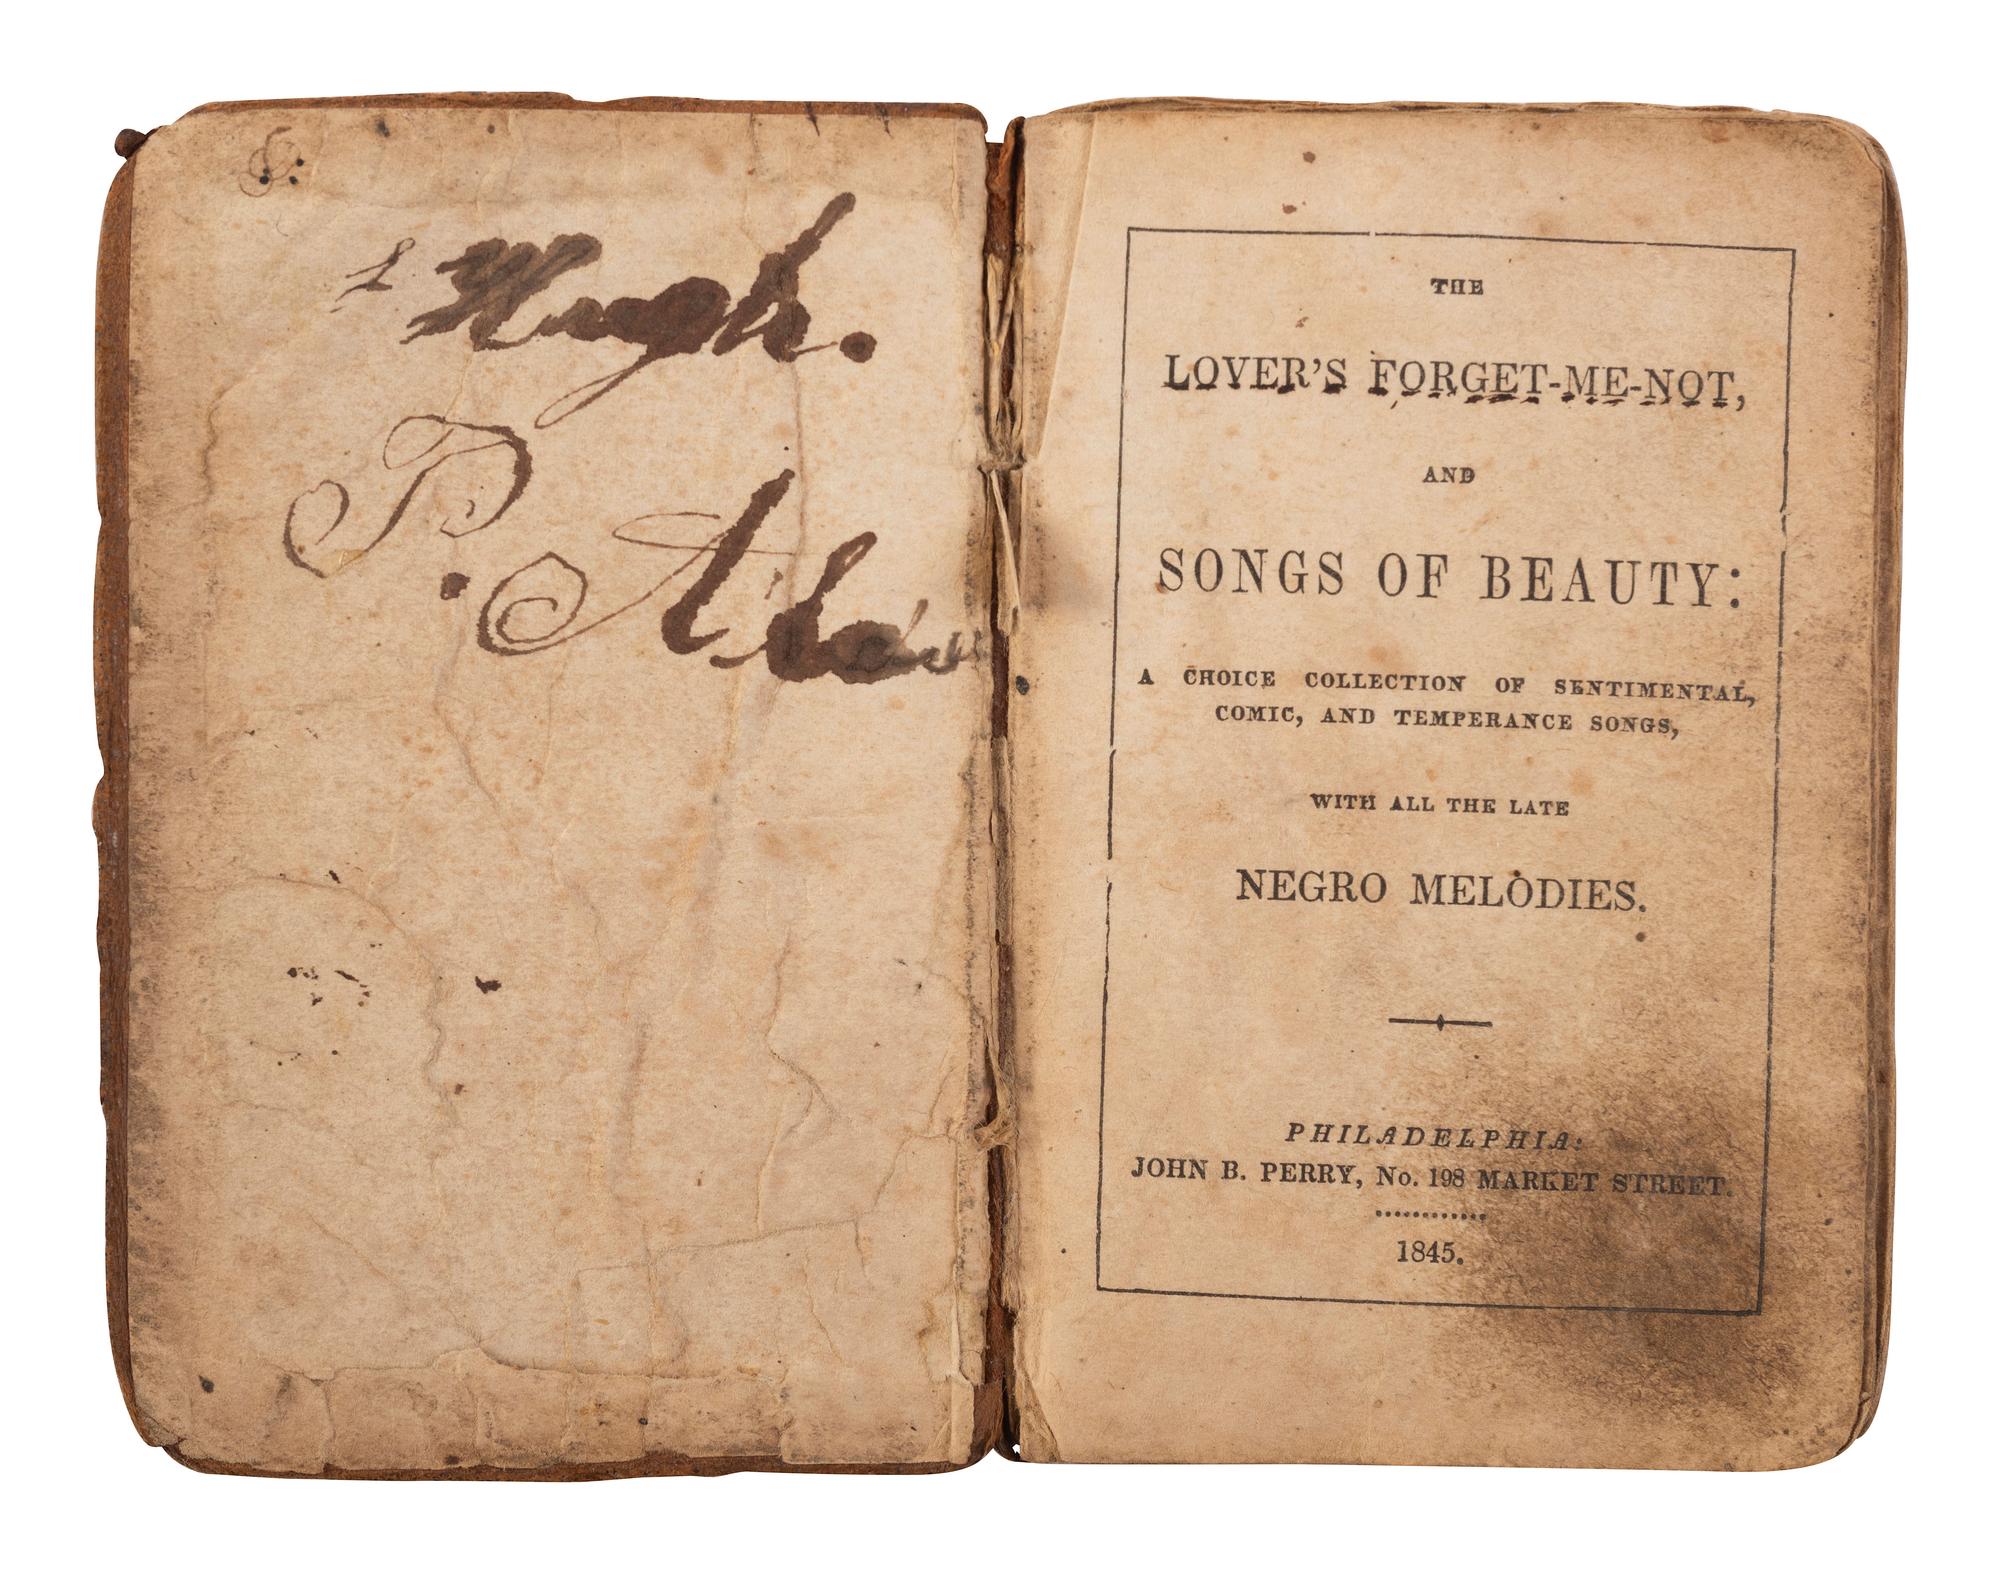 Hugh.
P.
THE
LOVER'S FORGET-ME-NOT,
AND
SONGS OF BEAUTY:
A CHOICE COLLECTION OF SENTIMENTAL,
COMIC, AND TEMPERANCE SONGS,
WITH ALL THE LATE
NEGRO MELODIES.
PHILADELPHIA:
JOHN B. PERRY, No. 198 MARKET STREET.
1845.